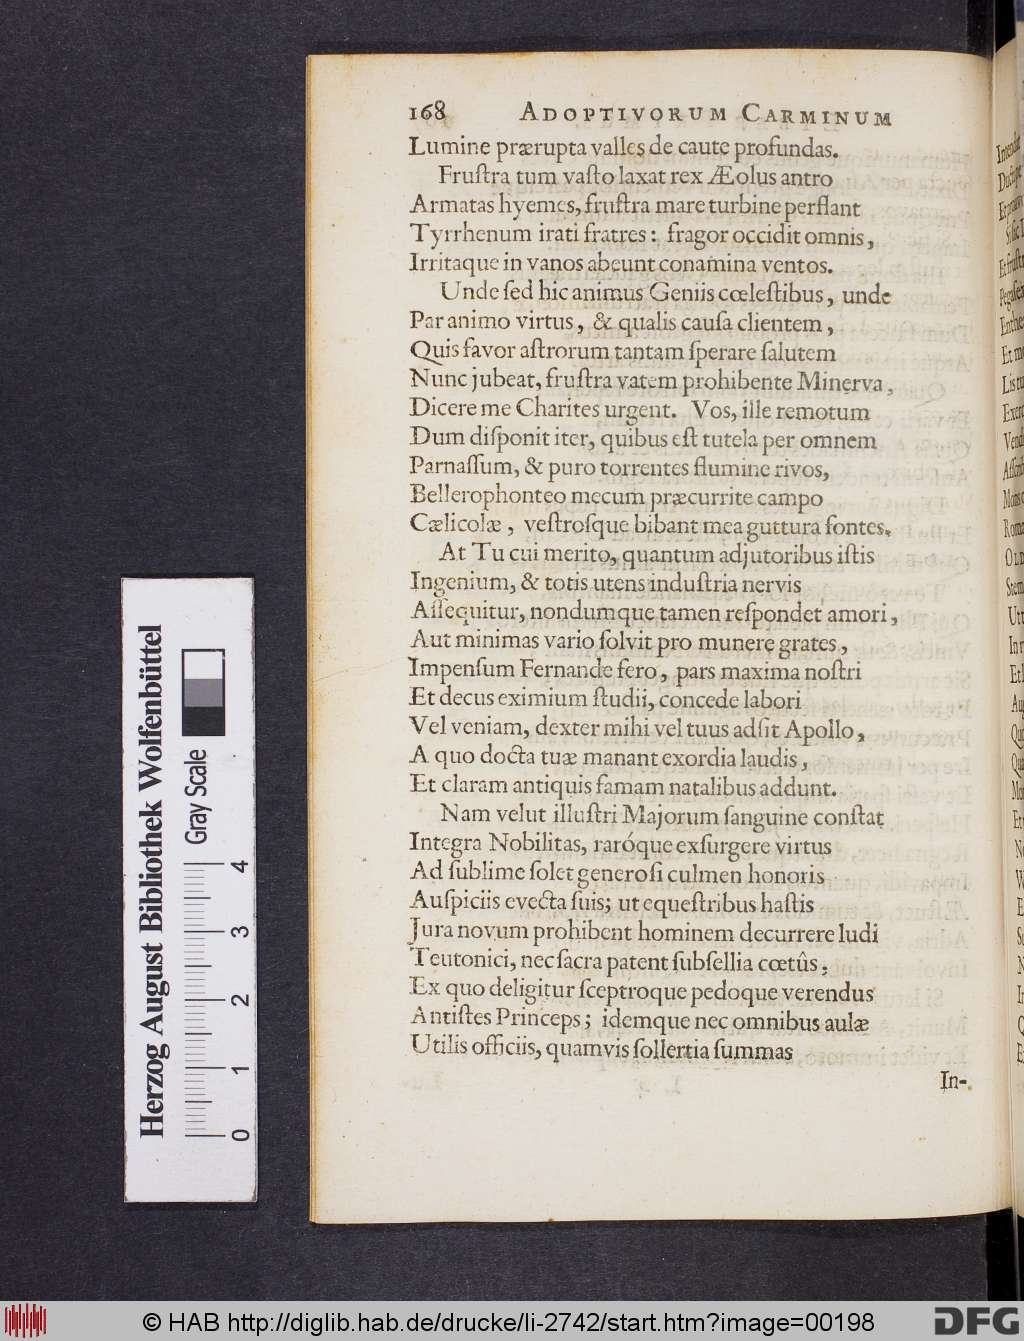 168 ADOPTIVORUM CARMINUM
Lumine prærupta valles de caute profundas.
Fruſtra tum vaſto laxat rex Æolus antro
Armatas hyemes, fruſtra mare turbine perflant
Tyrrhenum irati fratres: fragor occidit omnis,
Irritaque in vanos abeunt conamina ventos.
Unde ſed hic animus Geniis cœleſtibus, unde
Par animo virtus, & qualis cauſa clientem,
Quis favor aſtrorum tantam ſperare ſalutem
Nunc jubeat, fruſtra vatem prohibente Minerva,
Dicere me Charites urgent. Vos, ille remotum
Dum diſponit iter, quibus eſt tutela per omnem
Parnaſſum, & puro torrentes flumine rivos,
Bellerophonteo mecum præcurrite campo
Cælicolæ, veſtroſque bibant mea guttura fontes.
At Tu cui merito, quantum adjutoribus iſtis
Ingenium, & totis utens induſtria nervis
Aſſequitur, nondumque tamen reſpondet amori,
Aut minimas vario ſolvit pro munere grates,
Impenſum Fernande fero, pars maxima noſtri
Et decus eximium ſtudii, concede labori
Vel veniam, dexter mihi vel tuus adſit Apollo,
A quo docta tuæ manant exordia laudis,
Et claram antiquis famam natalibus addunt.
Nam velut illuſtri Majorum ſanguine conſtat
Integra Nobilitas, raróque exſurgere virtus
Ad ſublime ſolet generoſi culmen honoris
Auſpiciis evecta ſuis; ut equeſtribus haſtis
Jura novum prohibent hominem decurrere ludi
Teutonici, nec ſacra patent ſubſellia cœtûs,
Ex quo deligitur ſceptroque pedoque verendus
Antiſtes Princeps; idemque nec omnibus aulæ
Utilis officiis, quamvis ſollertia ſummas
In-
Herzog August Bibliothek Wolfenbüttel
Gray Scale
0 1 2 3 4
© HAB http://diglib.hab.de/drucke/li-2742/start.htm?image=00198
DFG